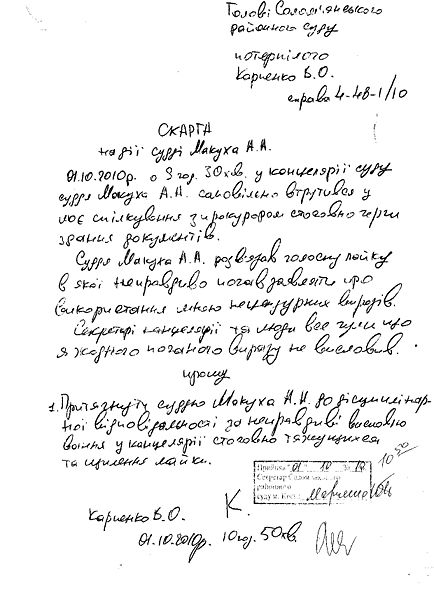 Голові Солом'янського
районного суду
потерпілого
Карпенко В.О.
справа 4-48-1/10
СКАРГА
на дії судді Макуха А.А.
01.10.2010р. о 9 год. 30хв. у канцелярії суду
суддя Макуха А.А. самовільно втрутився у
моє спілкування з прокурором стосовно
здання документів.
Суддя Макуха А.А. розв'язав голосну лайку
в якій неправдиво почав заявляти про
використання мною нецензурних виразів.
Секретарі канцелярії та люди все чули що
я жодного поганого виразу не висловив.
прошу
1. Притягнути суддю Макуха А.А. до дисциплінар-
ної відповідальності за неправдиві висловлю
вання у канцелярії стосовно
та лайки.
Прийняв "01" 10 2010
Секретар Солом'янського
районного
суду м. Києва
10 50
Карпенко В.О.
01.10.2010р. 10год. 50хв.